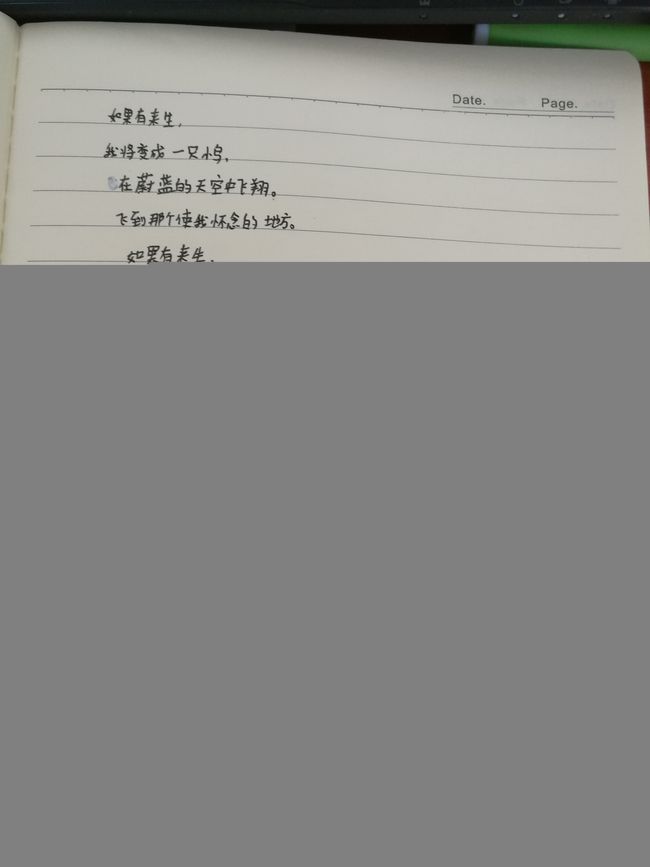 Date. Page.
如果有来生,
我将变成一只小鸟,
在蔚蓝的天空中飞翔。
飞到那个使我怀念的地方。
如果有来生,